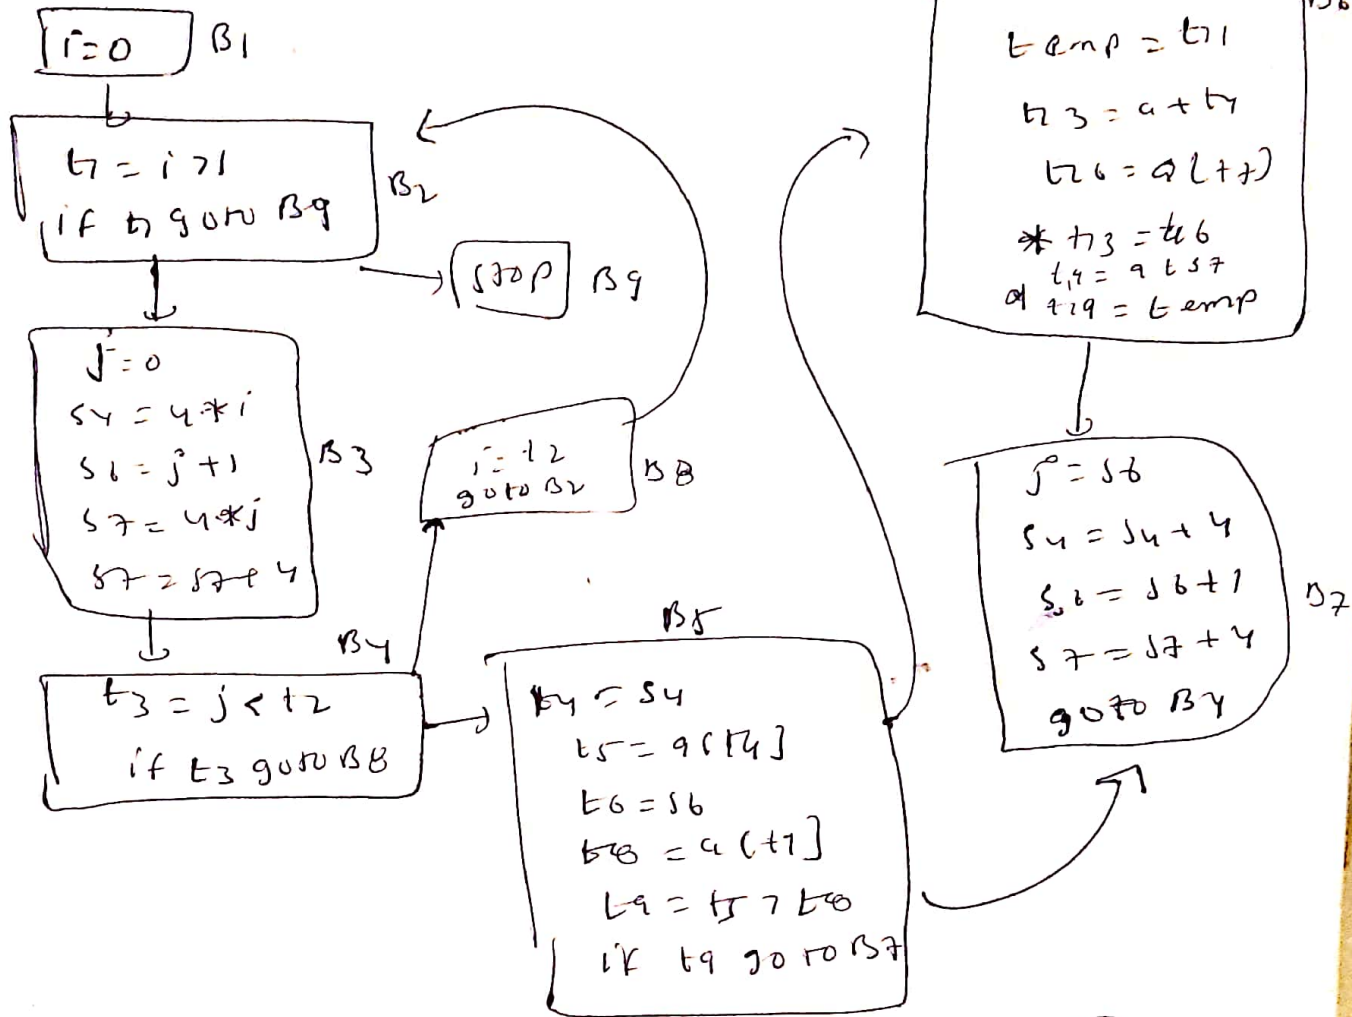 i=0 B1
t1 = i>1
if t1 goto B9
B2
STOP B9
j=0
s4 = 4*i
s6 = j+1
s7 = 4*j
s7 = s7+4
B3
i=t2
goto B2
B8
B4
t3 = j<t2
if t3 goto B8
B5
t4 = s4
t5 = a[t4]
t6 = s6
t8 = a[t7]
t9 = t5 > t8
if t9 goto B7
B6
temp = t11
t13 = a+t4
t26 = a[t7]
* t13 = t26
t19 = a+s7
t19 = temp
j = s6
s4 = s4+4
s6 = s6+1
s7 = s7+4
goto B4
B7